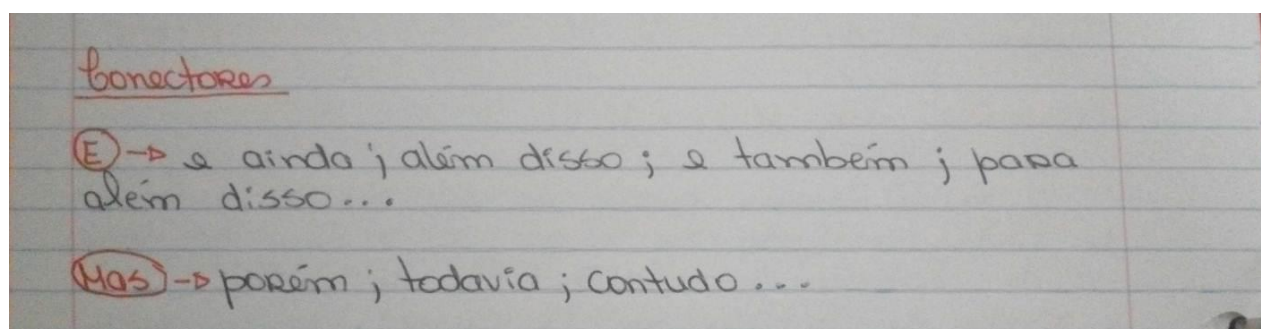 Conectores
E → e ainda; além disso; e também; para
além disso...
Mas → porém; todavia; contudo...